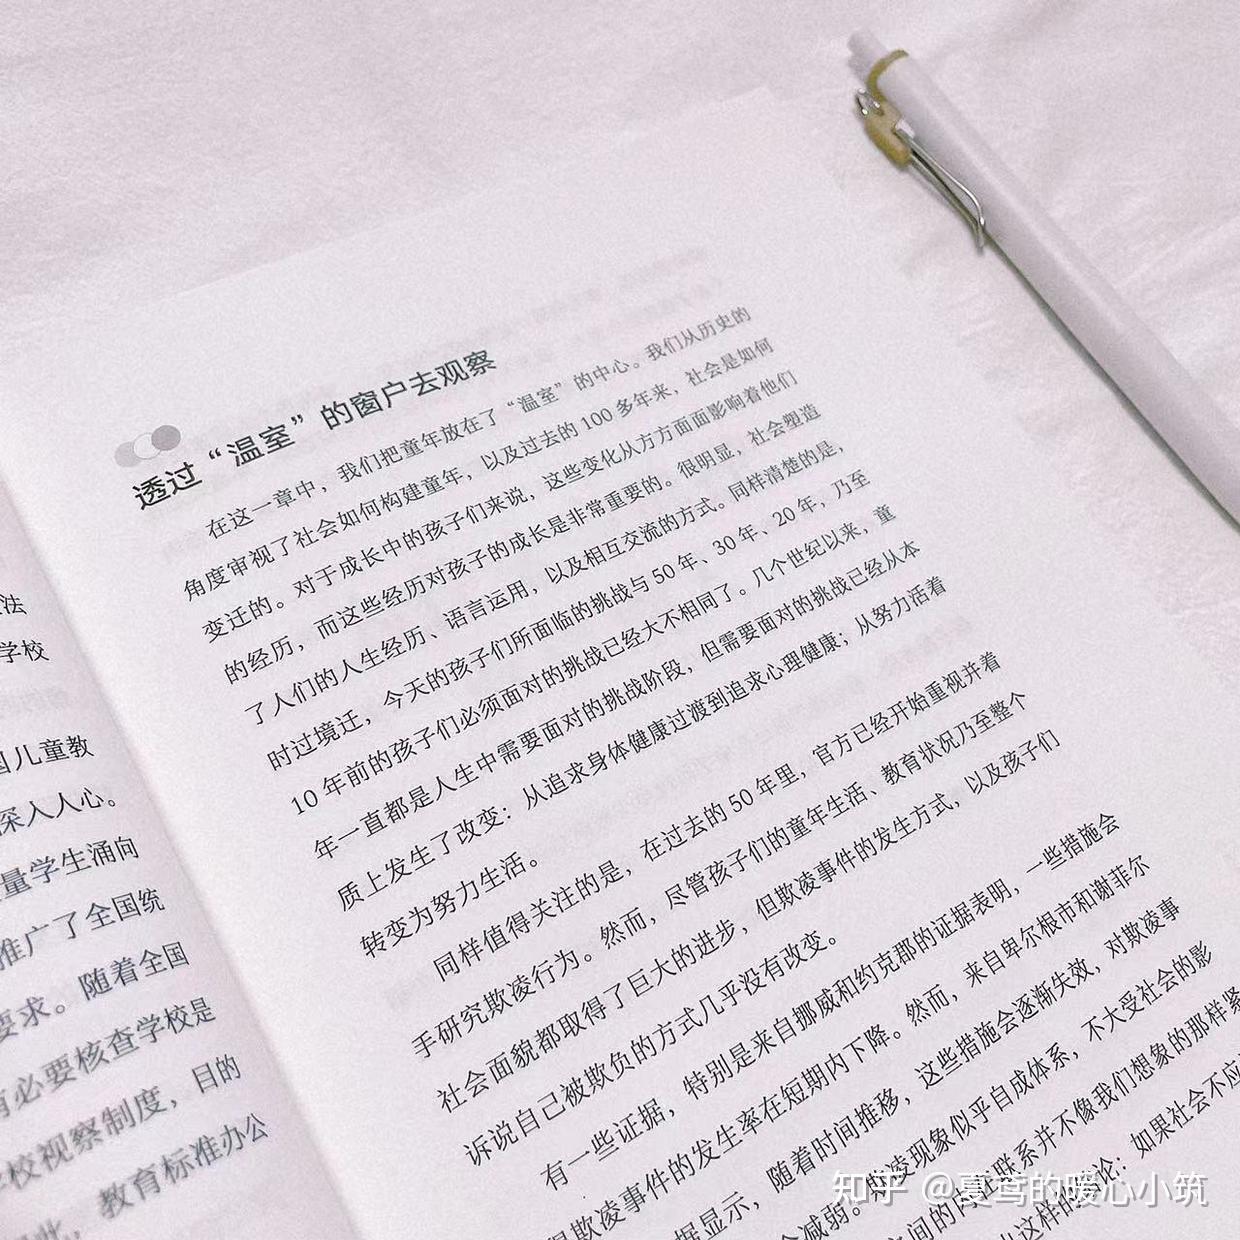 法
学校
国儿童教
深入人心。
量学生涌向
推广了全国统
要求。随着全国
有必要核查学校是
学校视察制度，目的
教育标准办公
透过“温室”的窗户去观察
在这一章中，我们把童年放在了“温室”的中心。我们从历史的
角度审视了社会如何构建童年，以及过去的100多年来，社会是如何
变迁的。对于成长中的孩子们来说，这些变化从方方面面影响着他们
的经历，而这些经历对孩子的成长是非常重要的。很明显，社会塑造
了人们的人生经历、语言运用，以及相互交流的方式。同样清楚的是，
时过境迁，今天的孩子们所面临的挑战与50年、30年、20年，乃至
10年前的孩子们必须面对的挑战已经大不相同了。几个世纪以来，童
年一直都是人生中需要面对的挑战阶段，但需要面对的挑战已经从本
质上发生了改变：从追求身体健康过渡到追求心理健康；从努力活着
转变为努力生活。
同样值得关注的是，在过去的50年里，官方已经开始重视并着
手研究欺凌行为。然而，尽管孩子们的童年生活、教育状况乃至整个
社会面貌都取得了巨大的进步，但欺凌事件的发生方式，以及孩子们
诉说自己被欺负的方式几乎没有改变。
有一些证据，特别是来自挪威和约克郡的证据表明，一些措施会
欺凌事件的发生率在短期内下降。然而，来自卑尔根市和谢菲尔
据显示，随着时间推移，这些措施会逐渐失效，对欺凌事
减弱。欺凌现象似乎自成体系，不大受社会的影
之间的内在联系并不像我们想象的那样紧
出这样的结论：如果社会不应
知乎 @夏鸢的暖心小筑